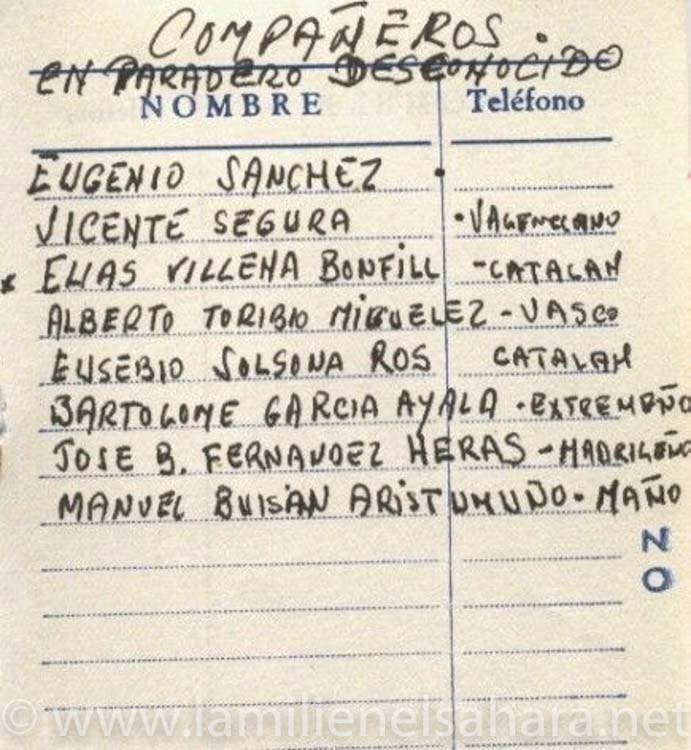 COMPAÑEROS.
EN PARADERO DESCONOCIDO
NOMBRE Teléfono
EUGENIO SANCHEZ .
VICENTE SEGURA . VALENCIANO
* ELIAS VILLENA BONFILL - CATALAN
ALBERTO TORIBIO MIGUELEZ - VASCO
EUSEBIO SOLSONA ROS CATALAN
BARTOLOME GARCIA AYALA . EXTREMEÑO
JOSE B. FERNANDEZ HERAS - MADRILEÑO
MANUEL BUISÁN ARISTUMUÑO . MAÑO
NO
© www.lamilienelsahara.net